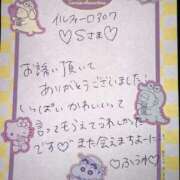 イルフィーロ307
♡Sさま♡
お誘い頂いて
ありがとうございました
いっぱいかわいいって
言ってもらえてうれしかった
です♡また会えますよーに